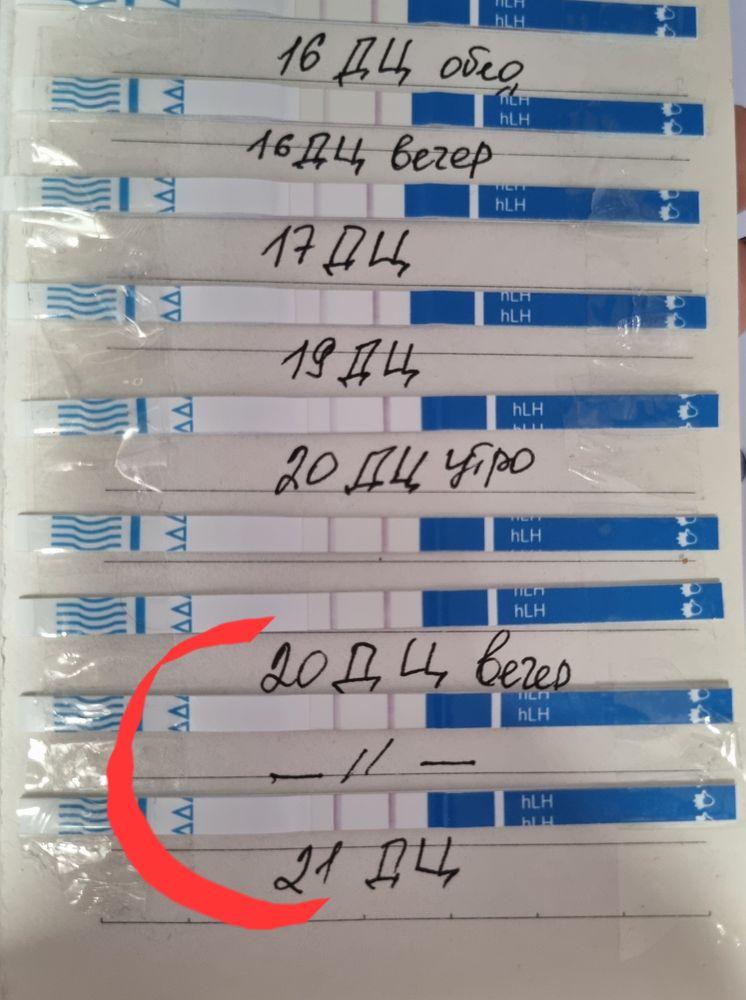 hLH
hLH
16 ДЦ обед
hLH
hLH
16 ДЦ вечер
hLH
hLH
17 ДЦ
hLH
hLH
19 ДЦ
hLH
hLH
20 ДЦ утро
hLH
hLH
hLH
hLH
20 ДЦ вечер
hLH
hLH
— // —
hLH
hLH
21 ДЦ